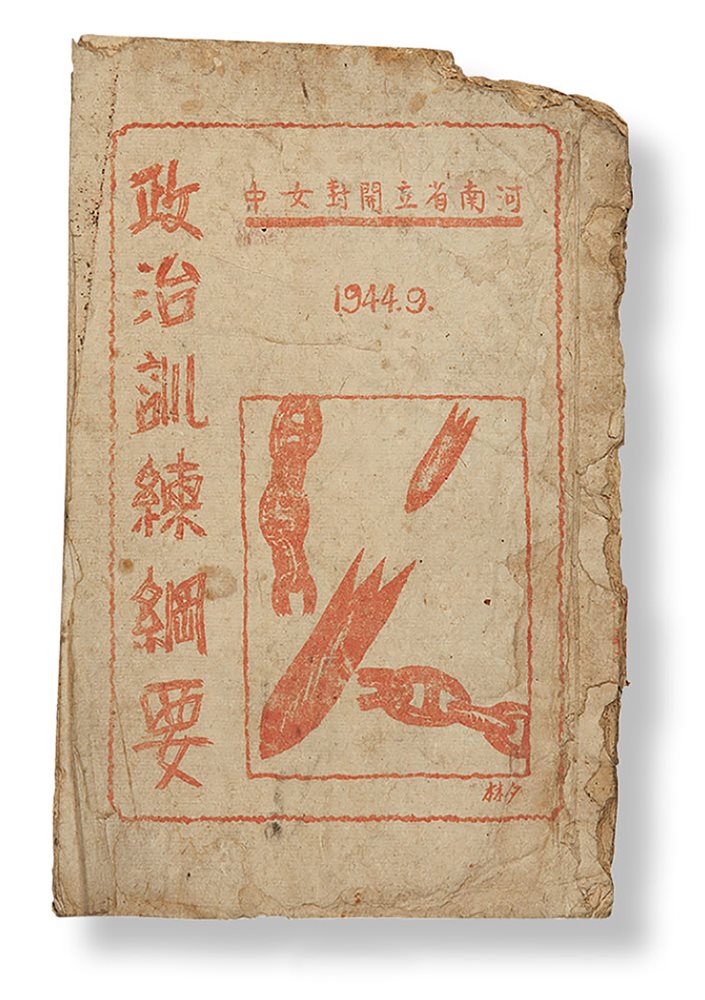 河南省立開封女中
1944.9.
政治訓練綱要
林夕